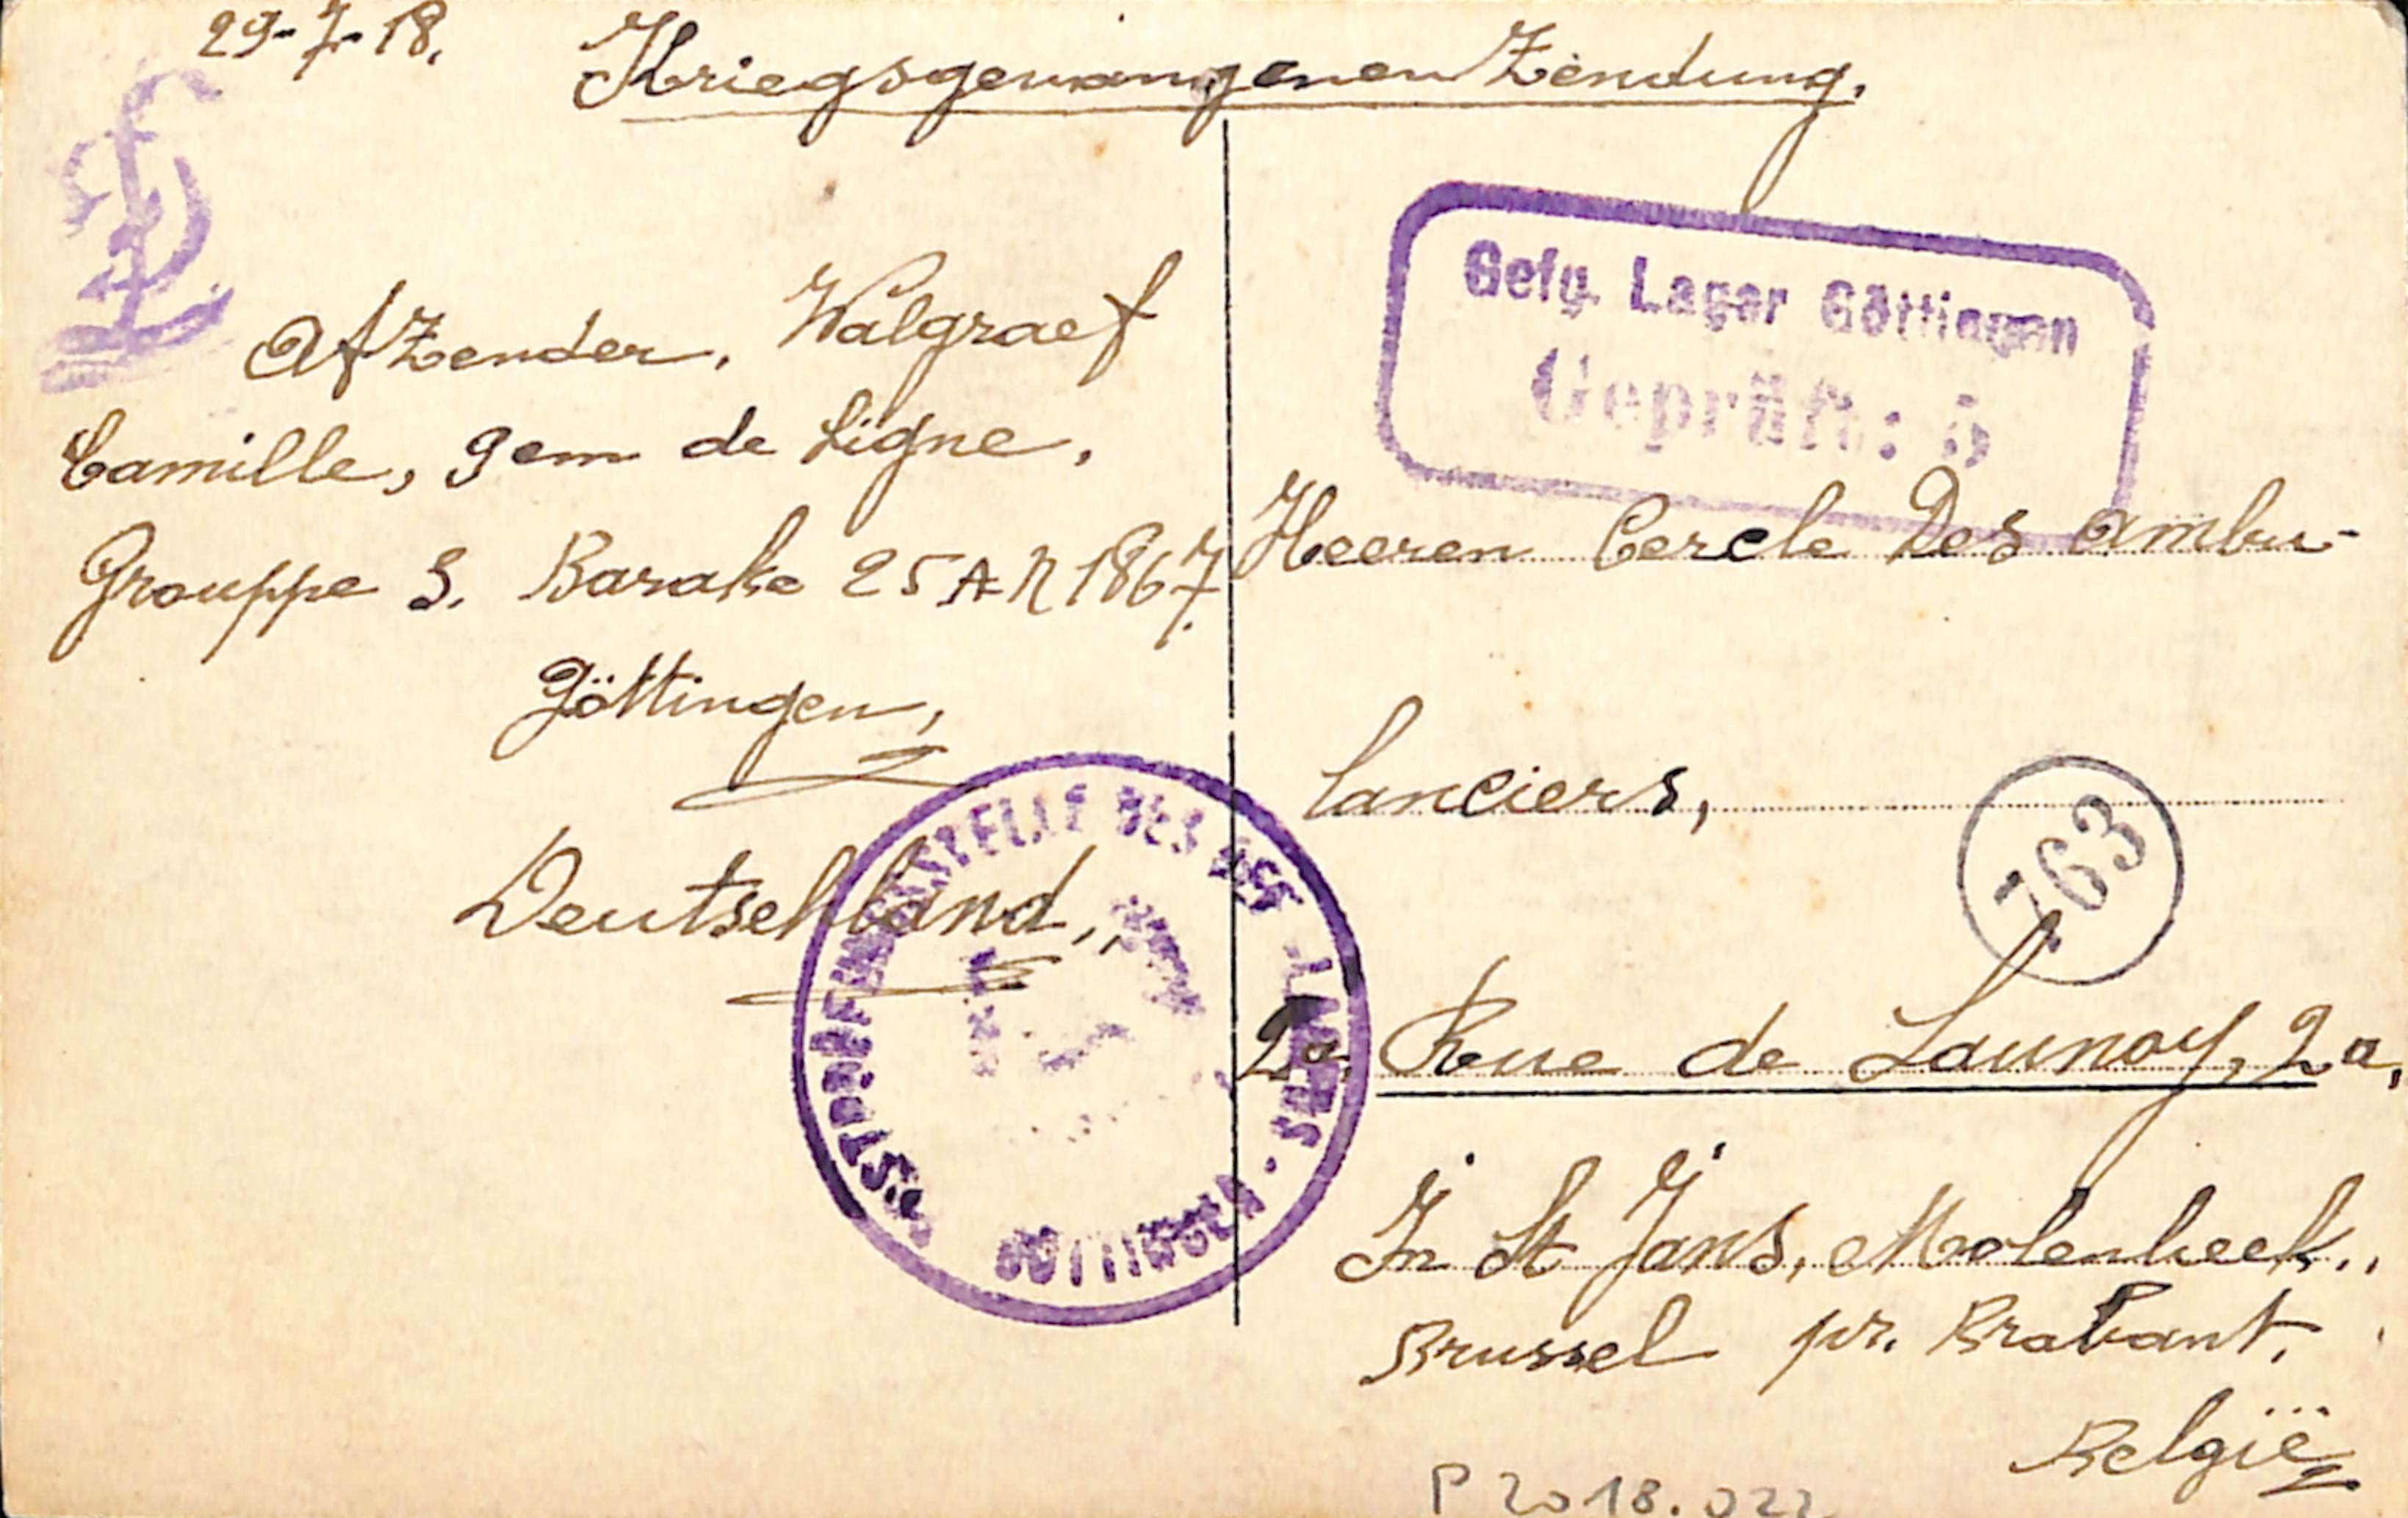 29-7-18.
Kriegsgevangenen Zendung.
Afzender, Walgraef
Camille, gem de Ligne,
Grouppe 3. Barake 25 A N 1867.
Göttingen,
Deutschland,,
Gefg. Lager Göttingen
Geprüft: 6
Heeren Cercle Des Ambu-
lanciers,
763
2a, Rue de Launoy, 2a,
In St Jans, Molenbeek.,
Brussel pr. Brabant.
België
POSTPRÜFUNGSSTELLE DES GEF LAGERS · GÖTTINGEN
P 2018.022